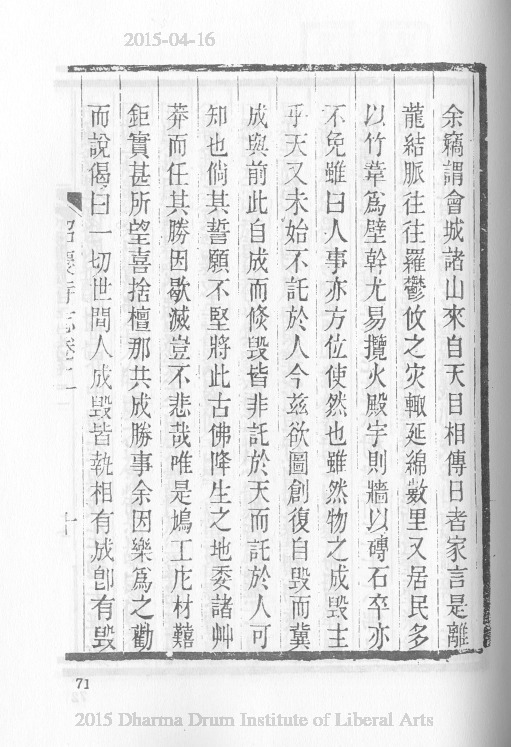 2015-04-16
余竊謂會城諸山來自天目相傳日者家言是離
龍結脈往往羅鬱攸之灾輙延綿數里又居民多
以竹葦爲壁幹尤易攬火殿宇則牆以磚石卒亦
不免雖曰人事亦方位使然也雖然物之成毁主
乎天又未始不託於人今茲欲圖創復自毁而冀
成與前此自成而倐毁皆非託於天而託於人可
知也倘其誓願不堅將此古佛降生之地委諸艸
莽而任其勝因歇滅豈不悲哉唯是鳩工庀材囏
鉅實甚所望喜捨檀那共成勝事余因樂爲之勸
而說偈曰一切世間人成毁皆執相有成卽有毁
寺志卷二
十
71
2015 Dharma Drum Institute of Liberal Arts